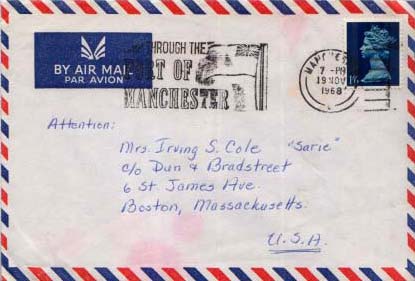 THROUGH THE
PORT OF
MANCHESTER
MANCHESTER
7 - PM
19 NOV
1968
BY AIR MAIL
PAR AVION
Attention:
Mrs. Irving S. Cole "Sarie"
c/o Dun & Bradstreet
6 St. James Ave.
Boston, Massachusetts.
U.S.A.